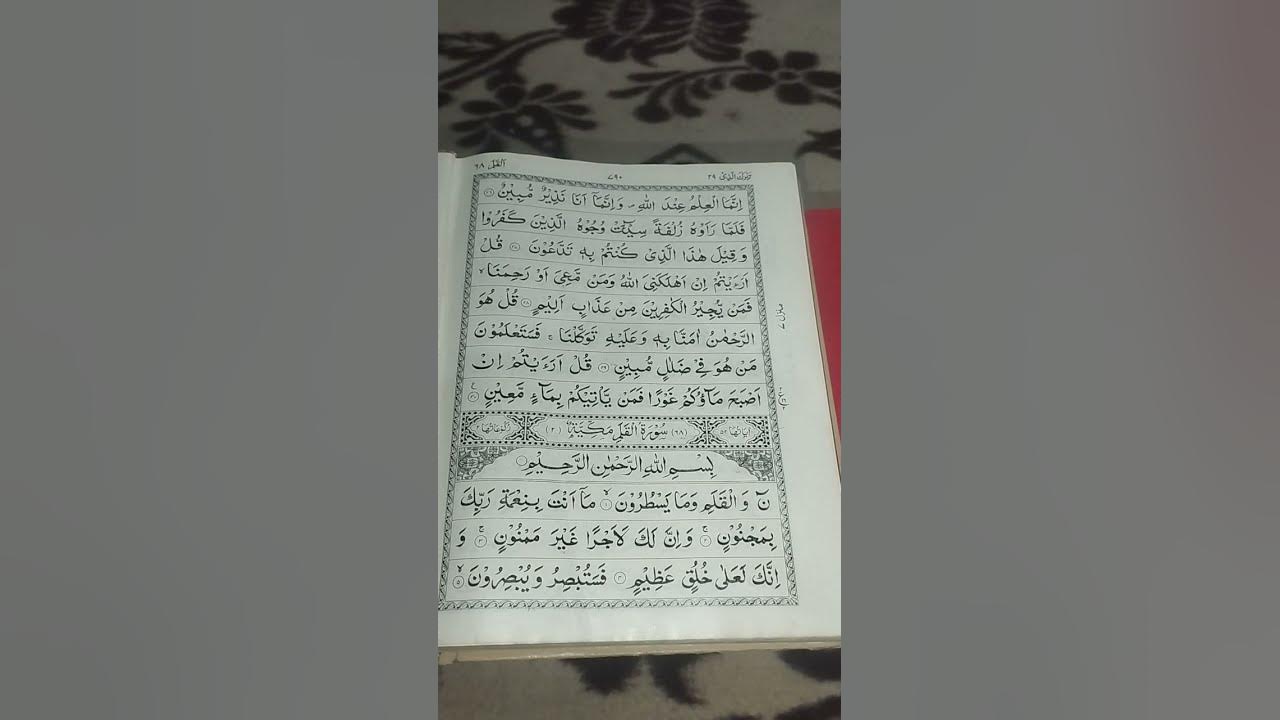 تبٰرك الذی ۲۹
۷۹۰
القلم ۶۸
اِنَّمَا الْعِلْمُ عِنْدَ اللّٰهِ ۪ وَاِنَّمَاۤ اَنَا نَذِیْرٌ مُّبِیْنٌ ۲۶
فَلَمَّا رَاَوْهُ زُلْفَةً سِیْٓـَٔتْ وُجُوْهُ الَّذِیْنَ كَفَرُوْا
وَقِیْلَ هٰذَا الَّذِیْ كُنْتُمْ بِهٖ تَدَّعُوْنَ ۲۷ قُلْ
اَرَءَیْتُمْ اِنْ اَهْلَكَنِیَ اللّٰهُ وَمَنْ مَّعِیَ اَوْ رَحِمَنَا ۙ
فَمَنْ یُّجِیْرُ الْكٰفِرِیْنَ مِنْ عَذَابٍ اَلِیْمٍ ۲۸ قُلْ هُوَ
الرَّحْمٰنُ اٰمَنَّا بِهٖ وَعَلَیْهِ تَوَكَّلْنَا ۚ فَسَتَعْلَمُوْنَ
مَنْ هُوَ فِیْ ضَلٰلٍ مُّبِیْنٍ ۲۹ قُلْ اَرَءَیْتُمْ اِنْ
اَصْبَحَ مَآؤُكُمْ غَوْرًا فَمَنْ یَّاْتِیْكُمْ بِمَآءٍ مَّعِیْنٍ ۳۰
اٰیَاتُهَا ۵۲ (۶۸) سُوْرَةُ الْقَلَمِ مَكِّیَّةٌ (۲) رُكُوْعَاتُهَا ۲
بِسْمِ اللّٰهِ الرَّحْمٰنِ الرَّحِیْمِ
نٓ وَالْقَلَمِ وَمَا یَسْطُرُوْنَ ۙ ۱ مَاۤ اَنْتَ بِنِعْمَةِ رَبِّكَ
بِمَجْنُوْنٍ ۚ ۲ وَاِنَّ لَكَ لَاَجْرًا غَیْرَ مَمْنُوْنٍ ۚ ۳ وَ
اِنَّكَ لَعَلٰی خُلُقٍ عَظِیْمٍ ۴ فَسَتُبْصِرُ وَیُبْصِرُوْنَ ۙ ۵
منزل ۷